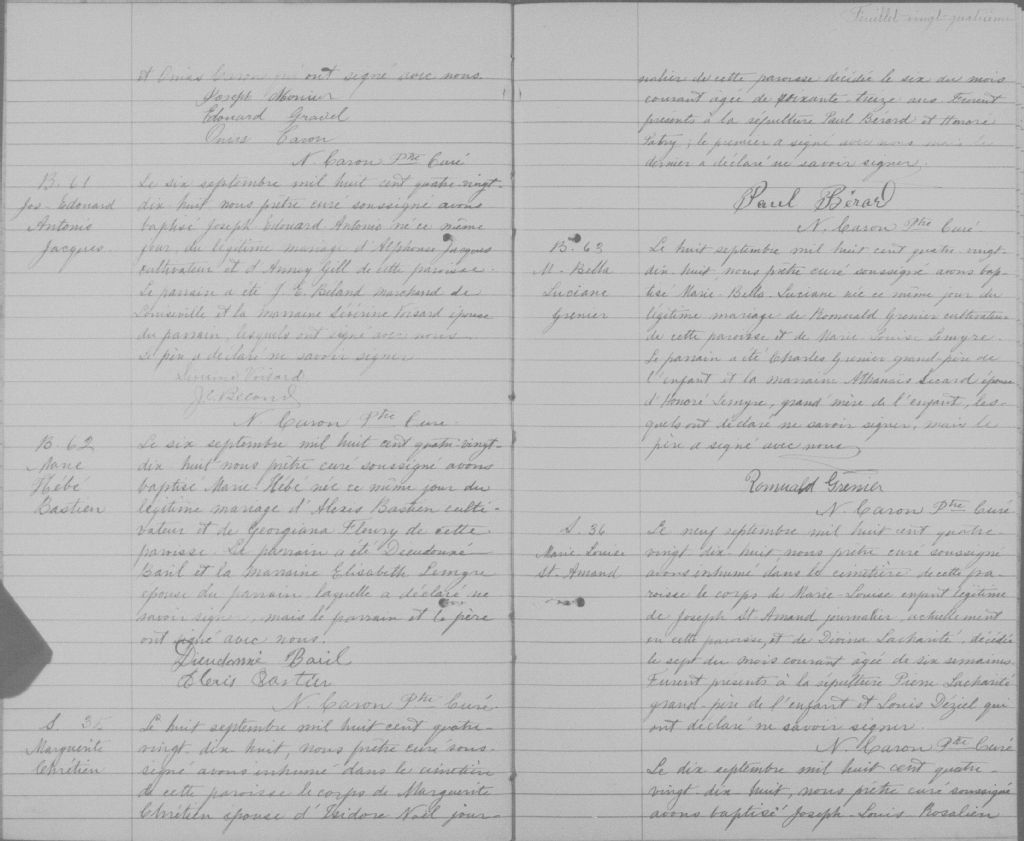 et Onias Caron qui ont signé avec nous.
Joseph Monier
Edouard Gravel
Onias Caron
N. Caron Ptre Curé
B. 61
Jos-Edouard
Antonio
Jacques
Le six septembre mil huit cent quatre-vingt-
dix huit nous prêtre curé soussigné avons
baptisé Joseph Edouard Antonio né ce même
jour du légitime mariage d'Alphonse Jacques
cultivateur et d'Anny Gill de cette paroisse.
Le parrain a été J. E. Béland marchand de
Louiseville et la marraine Sévérine Voisard épouse
du parrain, lesquels ont signé avec nous.
Le père a déclaré ne savoir signer
Voisard
N. Caron Ptre Curé
B. 62
Marie
Hébé
Bastien
Le six septembre mil huit cent quatre-vingt-
dix huit nous prêtre curé soussigné avons
baptisé Marie Hébé née ce même jour du
légitime mariage d'Alexis Bastien culti-
vateur et de Georgiana Fleury de cette
paroisse. Le parrain a été Dieudonné
Baril et la marraine Elisabeth Lemyre
épouse du parrain, laquelle a déclaré ne
savoir signer, mais le parrain et le père
ont signé avec nous.
Dieudonné Baril
Alexis Bastien
N. Caron Ptre Curé
S. 35
Marguerite
Chrétien
Le huit septembre mil huit cent quatre-
vingt-dix-huit, nous prêtre curé sous-
signé avons inhumé dans le cimetière
de cette paroisse le corps de Marguerite
Chrétien épouse d'Isidore Noël jour-
Feuillet vingt-quatrième
nalier de cette paroisse décédée le six du mois
courant âgée de soixante-treize ans. Furent
présents à la sépulture Paul Bérard et Honoré
Fabry; le premier a signé avec nous mais le
dernier a déclaré ne savoir signer.
Paul Bérard
N. Caron Ptre Curé
B. 63
M. Bella
Luciane
Grenier
Le huit septembre mil huit cent quatre-vingt-
dix-huit nous prêtre curé soussigné avons bap-
tisé Marie-Bella-Luciane née ce même jour du
légitime mariage de Romuald Grenier cultivateur
de cette paroisse et de Marie-Louise Lemyre.
Le parrain a été Charles Grenier grand-père de
l'enfant et la marraine Athanaïs Sicard épouse
d'Honoré Lemyre, grand'mère de l'enfant, les-
quels ont déclaré ne savoir signer, mais le
père a signé avec nous
Romuald Grenier
N. Caron Ptre Curé
S. 36
Marie-Louise
St. Amand
Le neuf septembre mil huit cent quatre-
vingt dix huit, nous prêtre curé soussigné
avons inhumé dans le cimetière de cette pa-
roisse le corps de Marie-Louise enfant légitime
de Joseph St Amand journalier, actuellement
en cette paroisse, et de Diorna Lacharité, décédée
le sept du mois courant âgée de six semaines.
Furent présents à la sépulture Pierre Lacharité
grand-père de l'enfant et Louis Déziel qui
ont déclaré ne savoir signer
N. Caron Ptre Curé
Le dix septembre mil huit cent quatre-
vingt dix huit, nous prêtre curé soussigné
avons baptisé Joseph-Louis Rosalien